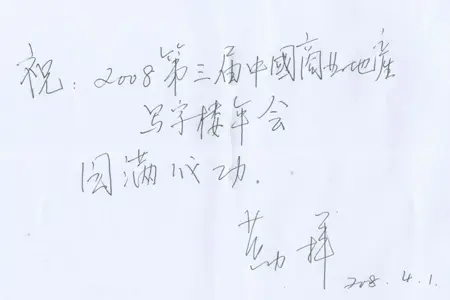 祝：2008第三届中國商业地産
写字楼年会
圆满成功.
2008.4.1.